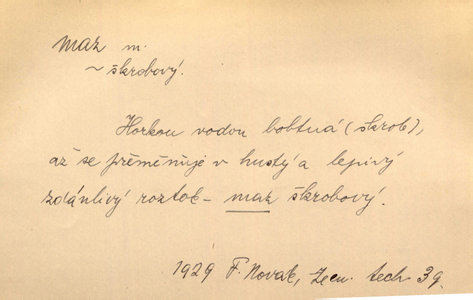 maz m.
~ škrobový.
Horkou vodou bobtná (škrob),
až se přeměňuje v hustý a lepivý
zdánlivý roztok – maz škrobový.
1929 F. Novák, Zem. tech 39.